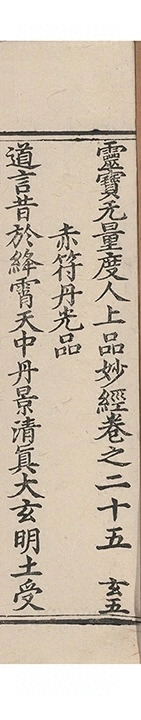 靈寶无量度人上品妙經卷之二十五 玄五
赤符丹光品
道言昔於絳霄天中丹景清真大玄明土受